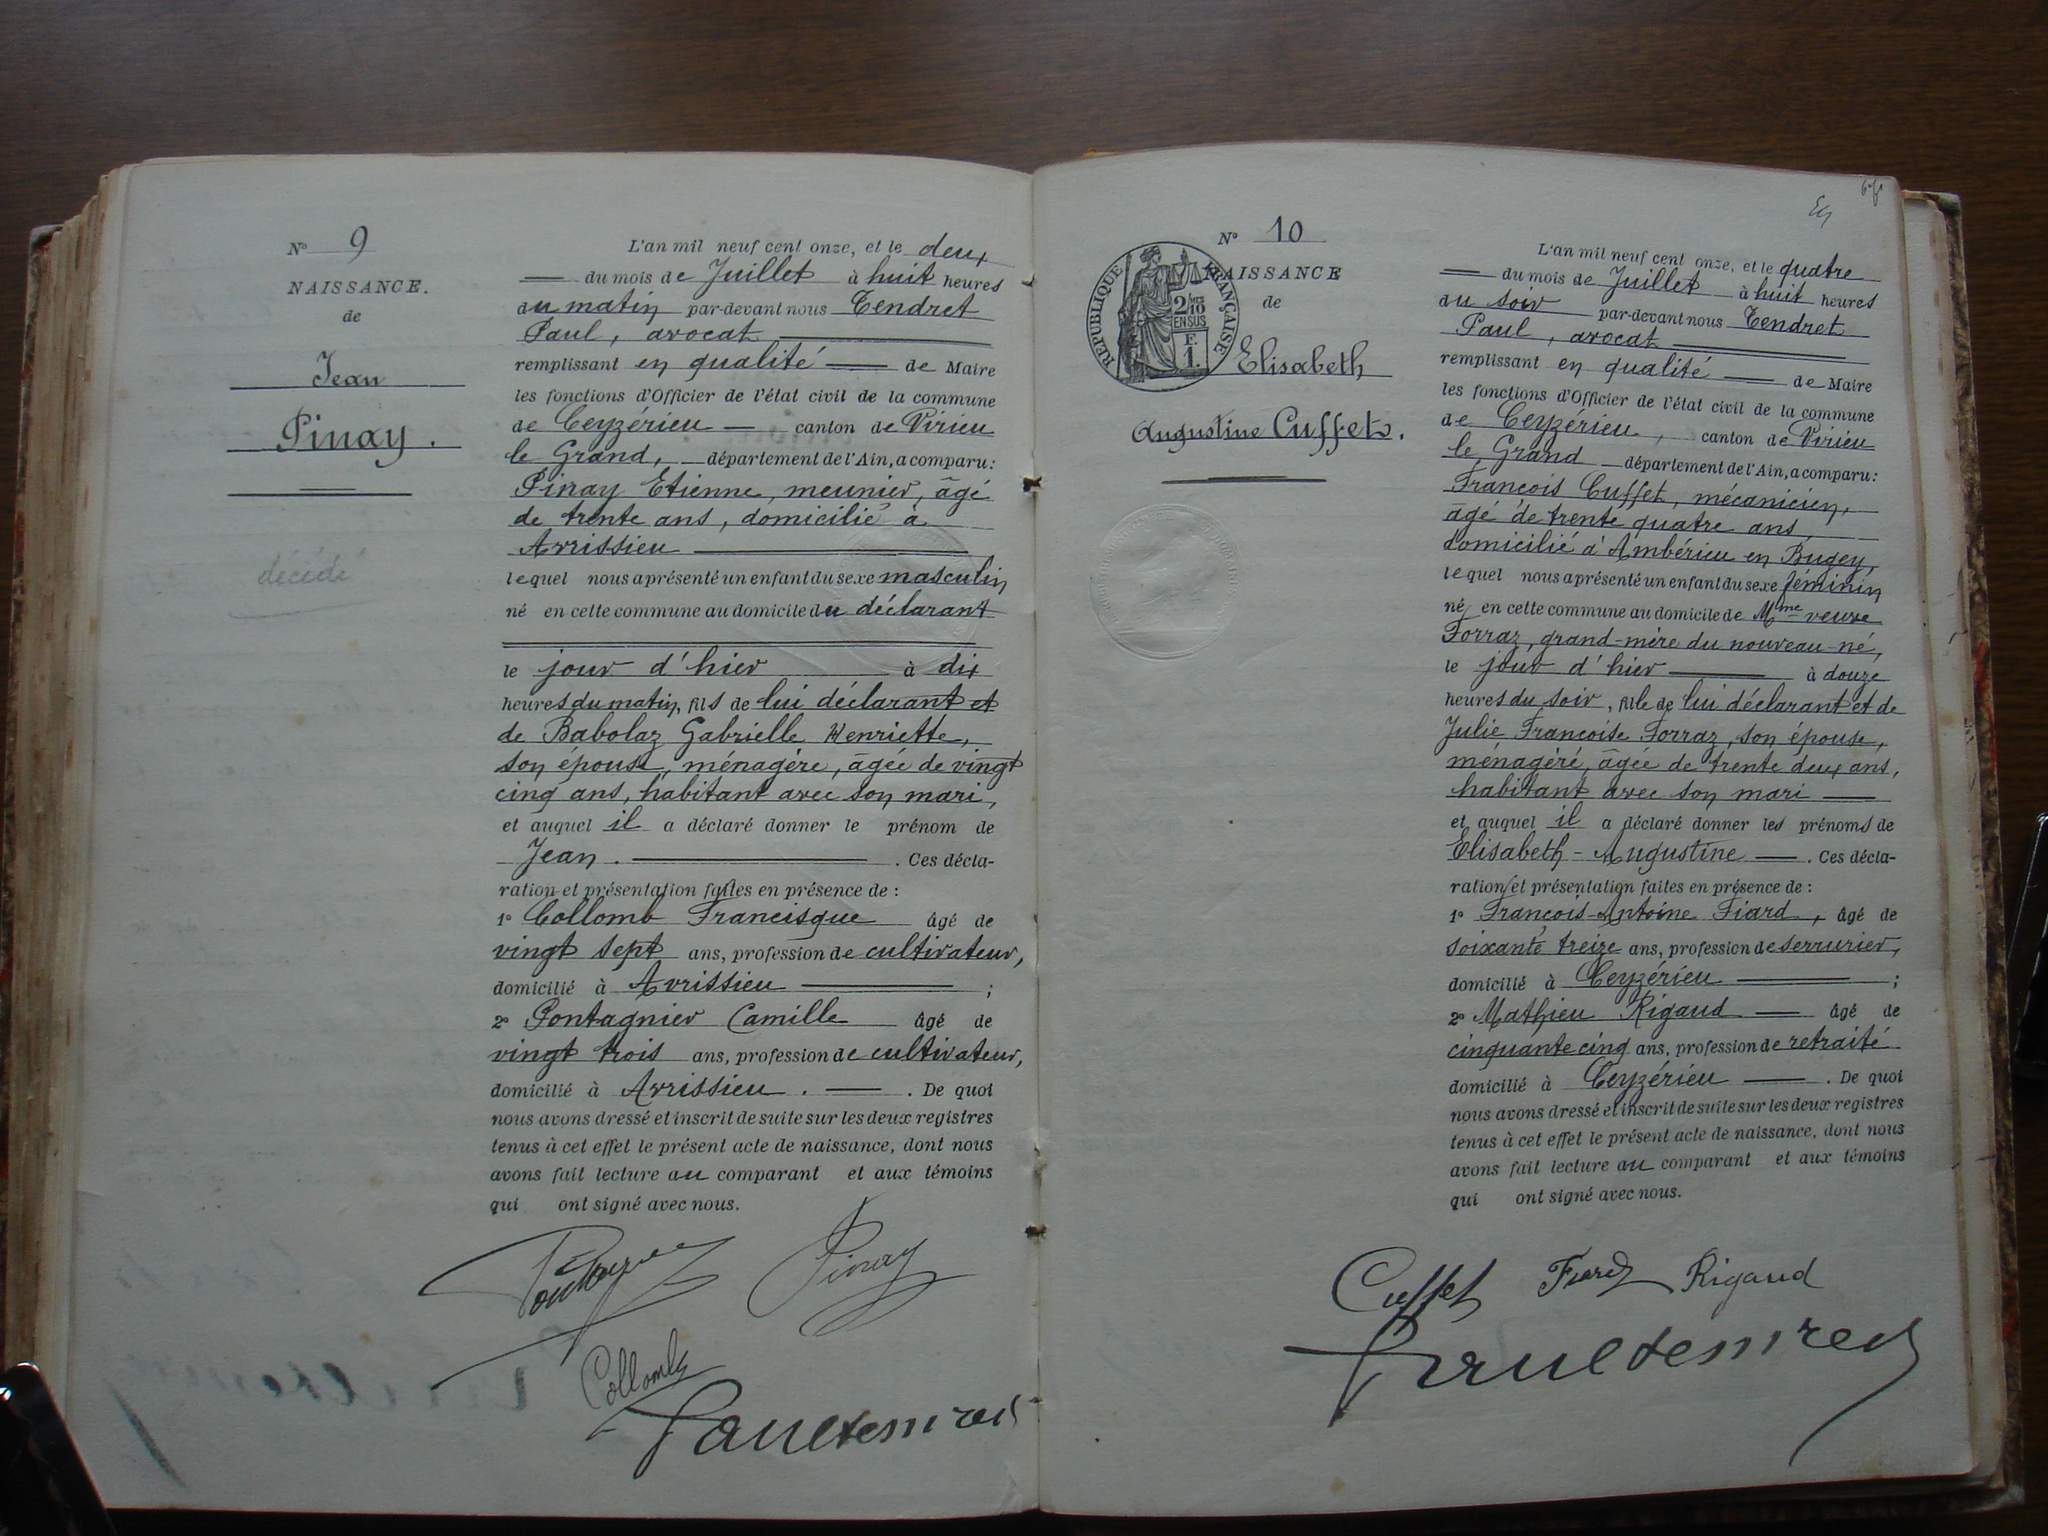 Nº 9
NAISSANCE.
de
Jean
Pinay.
décédé
L'an mil neuf cent onze, et le deux
du mois de Juillet à huit heures
du matin par-devant nous Tendret
Paul, avocat
remplissant en qualité de Maire
les fonctions d'Officier de l'état civil de la commune
de Ceyzérieu canton de Virieu
le Grand, département de l'Ain, a comparu:
Pinay Etienne, meunier, âgé
de trente ans, domicilié à
Avrissieu
lequel nous a présenté un enfant du sexe masculin
né en cette commune au domicile du déclarant
le jour d'hier à dix
heures du matin, fils de lui déclarant et
de Babolaz Gabrielle Henriette,
son épouse, ménagère, âgée de vingt
cinq ans, habitant avec son mari,
et auquel il a déclaré donner le prénom de
Jean. . Ces décla-
ration et présentation faites en présence de :
1º Collomb Francisque âgé de
vingt sept ans, profession de cultivateur,
domicilié à Avrissieu ;
2º Pontagnier Camille âgé de
vingt trois ans, profession de cultivateur,
domicilié à Avrissieu . . De quoi
nous avons dressé et inscrit de suite sur les deux registres
tenus à cet effet le présent acte de naissance, dont nous
avons fait lecture au comparant et aux témoins
qui ont signé avec nous.
Pinay
Collomb
Paul Tendret
Nº 10
NAISSANCE
de
RÉPUBLIQUE FRANÇAISE
2/10
EN SUS
F.
1.
Elisabeth
Augustine Cuffet.
L'an mil neuf cent onze, et le quatre
du mois de Juillet à huit heures
du soir par-devant nous Tendret
Paul, avocat
remplissant en qualité de Maire
les fonctions d'Officier de l'état civil de la commune
de Ceyzérieu, canton de Virieu
le Grand département de l'Ain, a comparu:
François Cuffet, mécanicien,
âgé de trente quatre ans
domicilié à Ambérieu en Bugey,
lequel nous a présenté un enfant du sexe féminin
né en cette commune au domicile de Mme veuve
Forraz, grand-mère du nouveau-né,
le jour d'hier à douze
heures du soir, fille de lui déclarant et de
Julie Françoise Forraz, son épouse,
ménagère, âgée de trente deux ans,
habitant avec son mari
et auquel il a déclaré donner les prénoms de
Elisabeth-Augustine . Ces décla-
ration et présentation faites en présence de :
1º François-Antoine Fiard, âgé de
soixante treize ans, profession de serrurier,
domicilié à Ceyzérieu ;
2º Mathieu Rigaud âgé de
cinquante cinq ans, profession de retraité
domicilié à Ceyzérieu . De quoi
nous avons dressé et inscrit de suite sur les deux registres
tenus à cet effet le présent acte de naissance, dont nous
avons fait lecture au comparant et aux témoins
qui ont signé avec nous.
Cuffet Fiard Rigaud
Paul Tendret